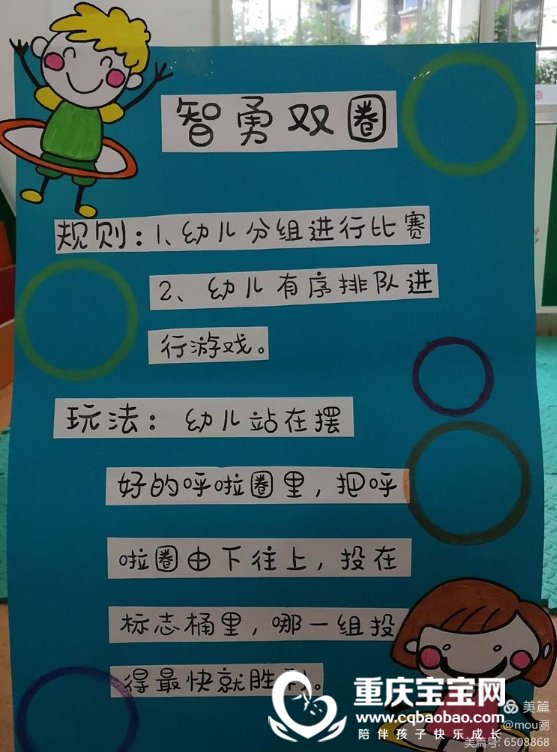 智勇双圈
规则:1、幼儿分组进行比赛
2、幼儿有序排队进
行游戏。
玩法:幼儿站在摆
好的呼啦圈里,把呼
啦圈由下往上,投在
标志桶里,哪一组投
得最快就胜利。
重庆宝宝网
www.cqbaobao.com
陪伴孩子快乐成长
美篇
@mou丽
美篇号:6508868